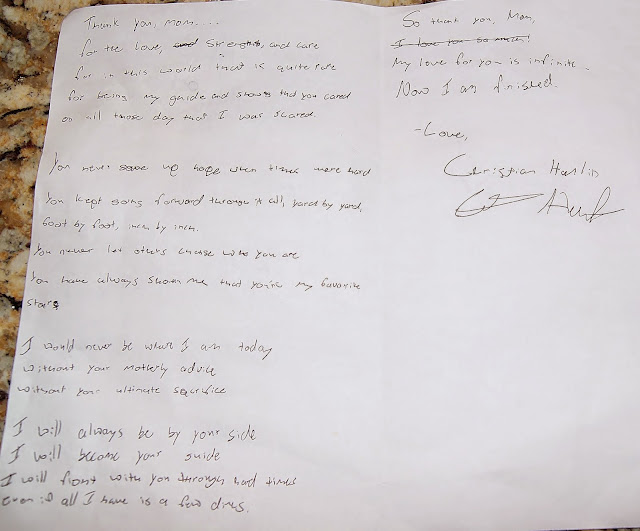 Thank you, Mom....
for the love, and Strength, and care
for in this world that is quite rare
for being my guide and showing that you cared
on all those day that I was scared.
You never gave up hope when times were hard
You kept going forward through it all, yard by yard,
foot by foot, inch by inch.
You never let others change who you are
You have always shown me that you're my favorite
star
I would never be where I am today
without your Motherly advice
without your ultimate sacrifice
I will always be by your side
I will become your guide
I will fight with you through hard times
even if all I have is a few dimes.
So thank you, Mom,
I love you so much!
My love for you is infinite.
Now I am finished.
-Love,
Christian